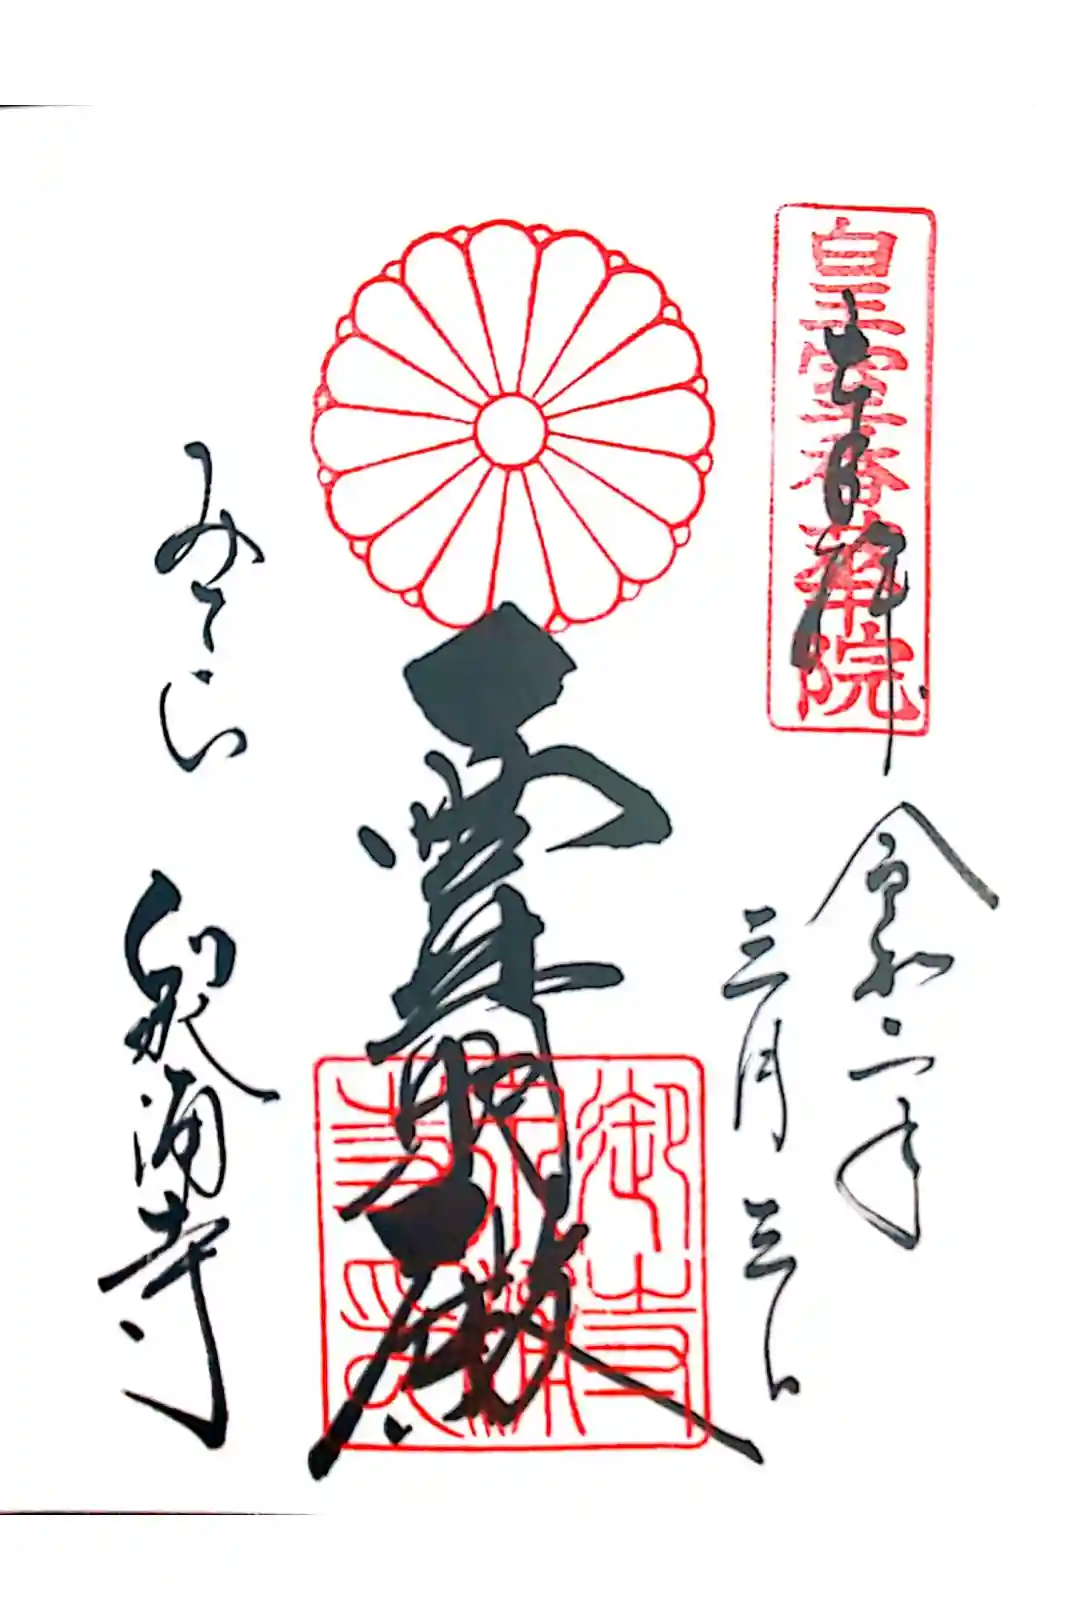 皇室香華院
奉拝
令和二年
三月三日
霊明殿
御寺泉涌寺印
みてら
泉涌寺